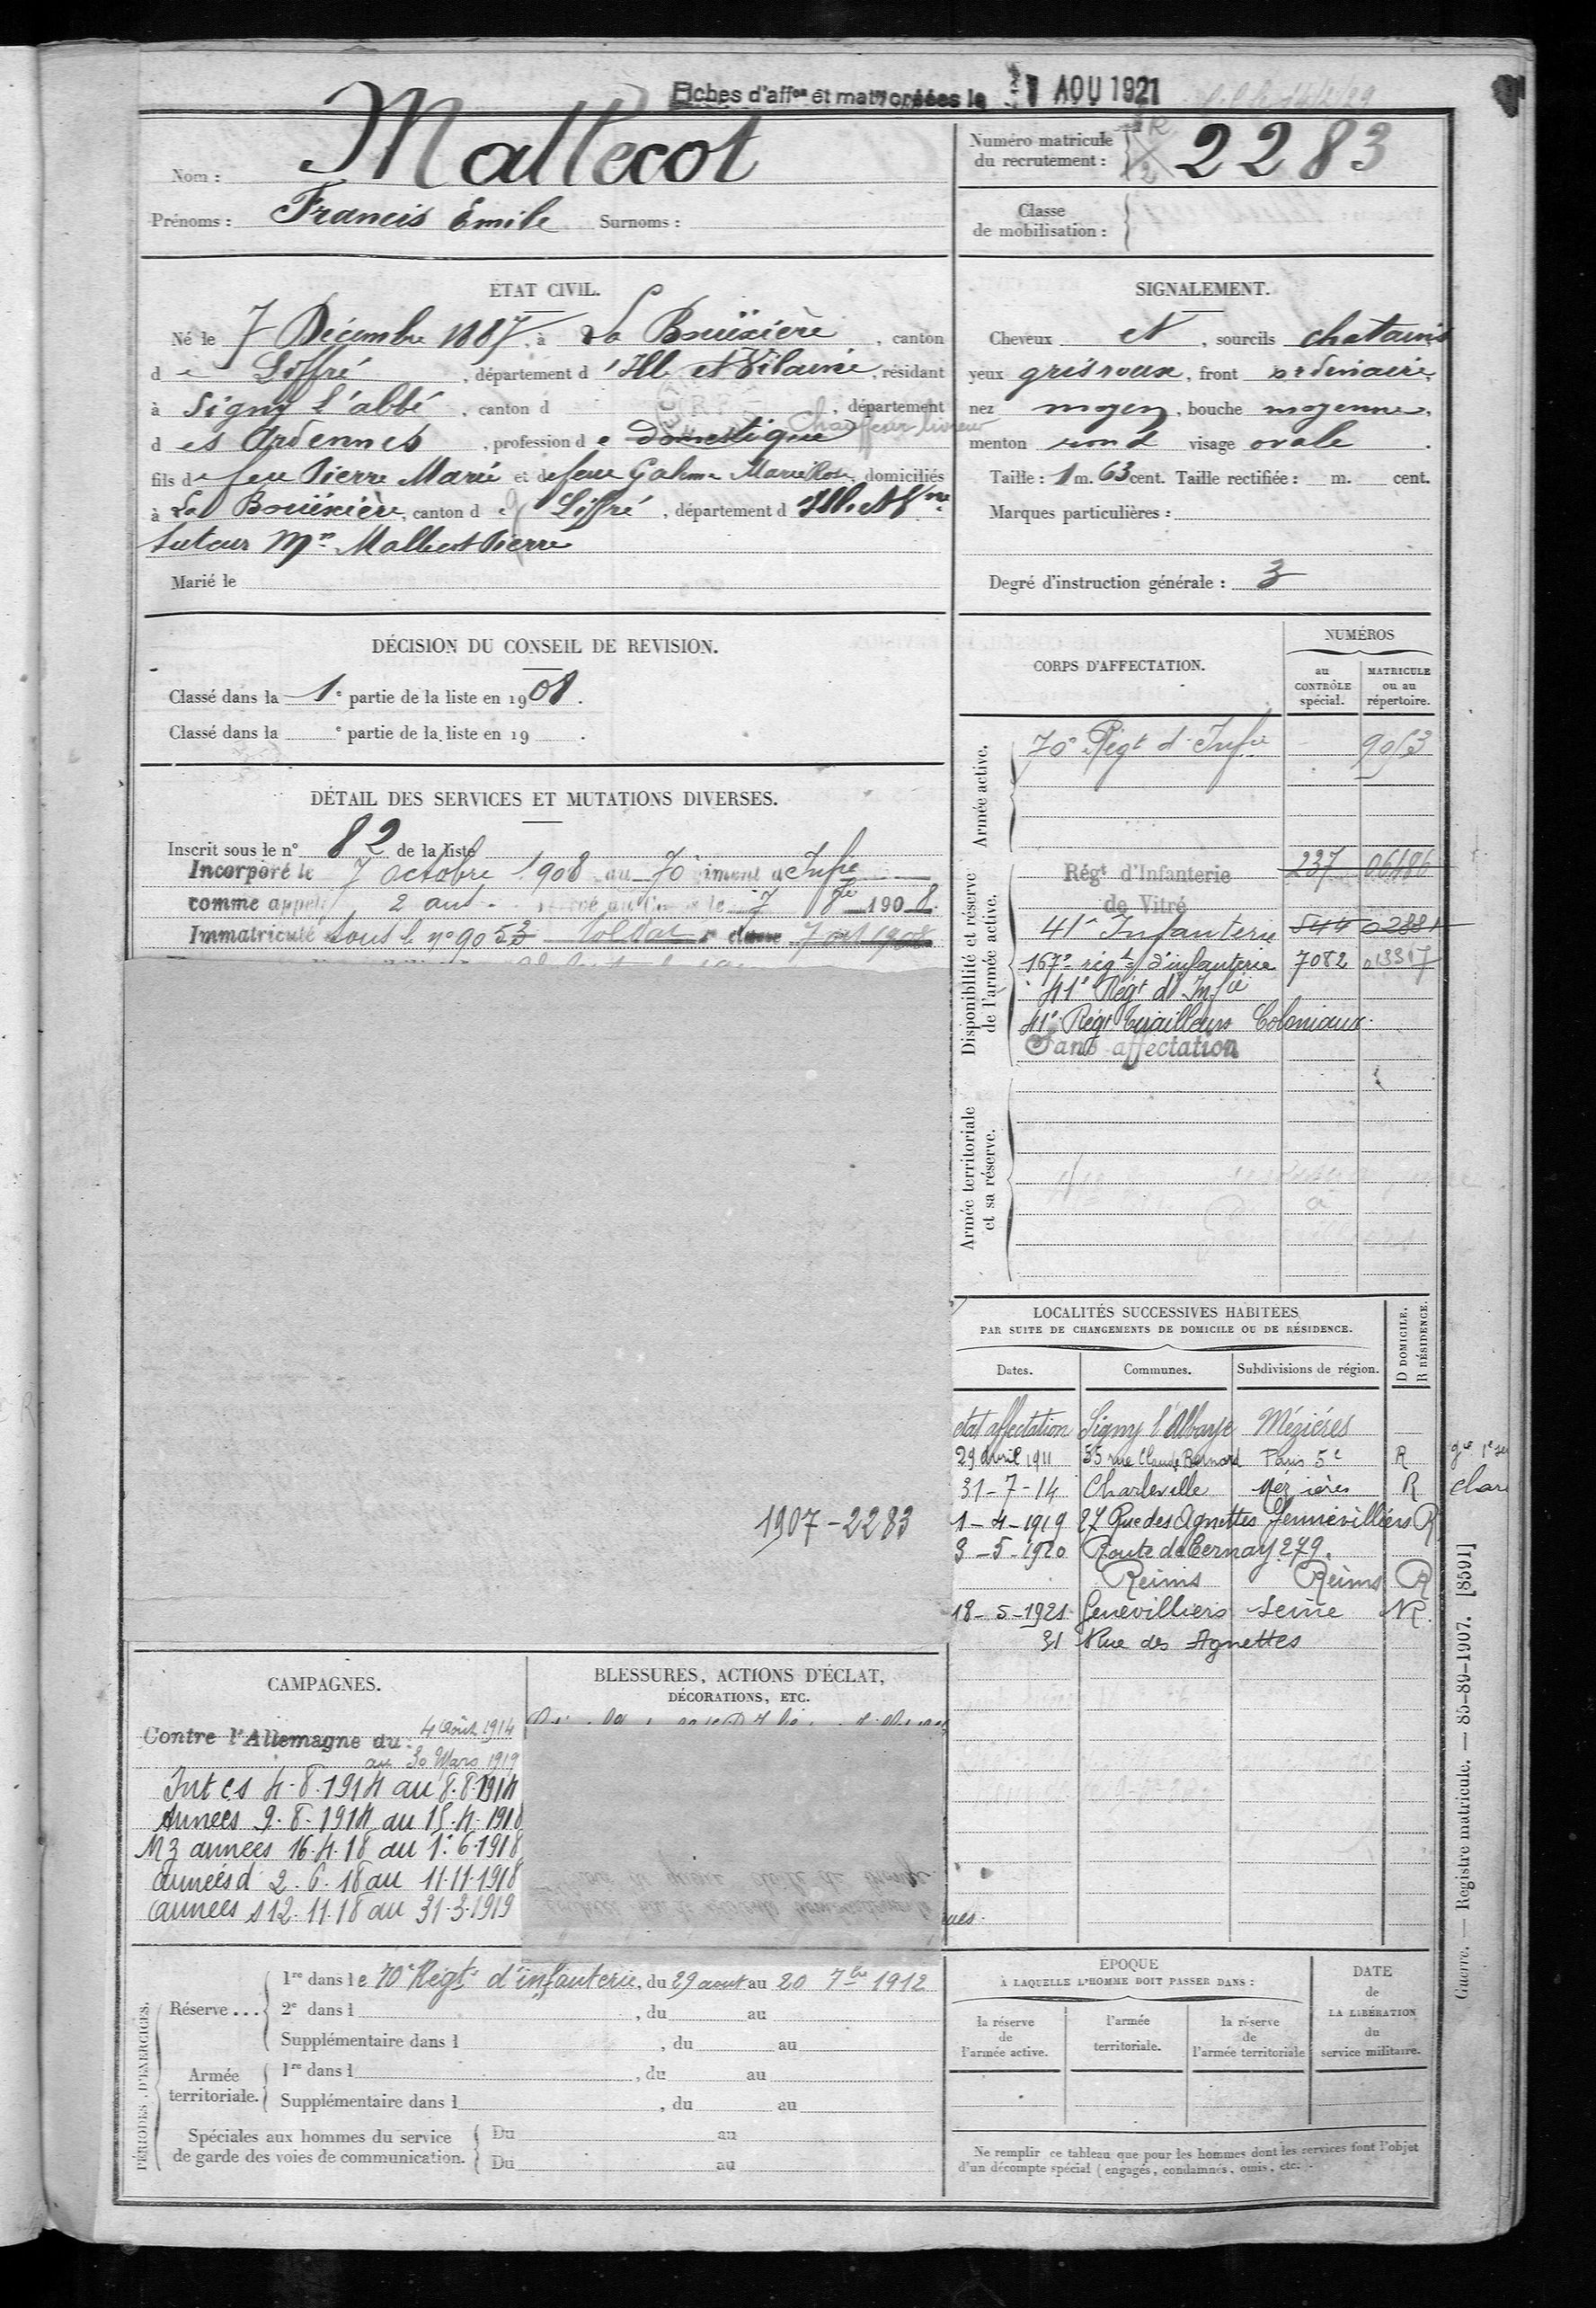 Fiches d'affon et matr créées le 1 AOU 1921
Nom : Mallecot
Prénoms : Francis Emile Surnoms :
Numéro matricule
du recrutement : 2283
Classe
de mobilisation :
ÉTAT CIVIL.
Né le 7 Décembre 1887, à La Bouëxière, canton
de Liffré, département d'Ille et Vilaine, résidant
à Signy l'abbé, canton d , département
des Ardennes, profession de domestique Chauffeur livreur
fils de feu Pierre Marie et de feue Marie Rose, domiciliés
à La Bouëxière, canton de Liffré, département d'Ille et Vne
tuteur Mr Mallecot Pierre
Marié le
SIGNALEMENT.
Cheveux et, sourcils chatains
yeux gris roux, front ordinaire,
nez moyen, bouche moyenne,
menton rond visage ovale.
Taille : 1 m. 63 cent. Taille rectifiée : m. cent.
Marques particulières :
Degré d'instruction générale : 3
DÉCISION DU CONSEIL DE REVISION.
Classé dans la 1e partie de la liste en 1908.
Classé dans la e partie de la liste en 19 .
DÉTAIL DES SERVICES ET MUTATIONS DIVERSES.
Inscrit sous le n° 82 de la liste
Incorporé le 7 octobre 1908 au 70 iment d'Infie
comme appelé 2 ans. 7 8bre 1908.
Immatriculé sous le n° 9053 soldat 7 oct 1908
CORPS D'AFFECTATION.
NUMÉROS
au
CONTRÔLE
spécial.
MATRICULE
ou au
répertoire.
Armée active.
70e Régt d'Infie 9053
Disponibilité et réserve
de l'armée active.
Régt d'Infanterie 237 06486
de Vitré
41e Infanterie 544 02881
167e régt d'infanterie 7082 013317
41e Régt d'Infie
41e Régt tirailleurs Coloniaux.
Sans affectation
Armée territoriale
et sa réserve.
1907-2283
LOCALITÉS SUCCESSIVES HABITÉES
PAR SUITE DE CHANGEMENTS DE DOMICILE OU DE RÉSIDENCE.
Dates. Communes. Subdivisions de région. D DOMICILE. R RÉSIDENCE.
etat affectation Signy l'Abbaye Mézières
29 avril 1911 55 rue Claude Bernard Paris 5e R
31-7-14 Charleville Mézières R
1-4-1919 27 Rue des Agnettes Gennevilliers R
3-5-1920 Route de Cernay 279.
Reims Reims R
18-5-1921 Genevilliers Seine R.
31 Rue des Agnettes
CAMPAGNES.
Contre l'Allemagne du 4 Août 1914
au 30 Mars 1919
Int cs 4.8.1914 au 8.8.1914
Armées 9.8.1914 au 15.4.1918
armées 16.4.18 au 1.6.1918
armées d 2.6.18 au 11.11.1918
armées s 12.11.18 au 31.3.1919
BLESSURES, ACTIONS D'ÉCLAT,
DÉCORATIONS, ETC.
PÉRIODES D'EXERCICES.
Réserve... 1re dans le 70e Régt d'infanterie, du 29 aout au 20 7bre 1912
2e dans l , du au
Supplémentaire dans l , du au
Armée
territoriale. 1re dans l , du au
Supplémentaire dans l , du au
Spéciales aux hommes du service
de garde des voies de communication. Du au
Du au
ÉPOQUE
À LAQUELLE L'HOMME DOIT PASSER DANS :
la réserve
de
l'armée active.
l'armée
territoriale.
la réserve
de
l'armée territoriale
DATE
de
LA LIBÉRATION
du
service militaire.
Ne remplir ce tableau que pour les hommes dont les services font l'objet
d'un décompte spécial (engagés, condamnés, omis, etc.).
Guerre. — Registre matricule. — 85-89-1907. [8591]